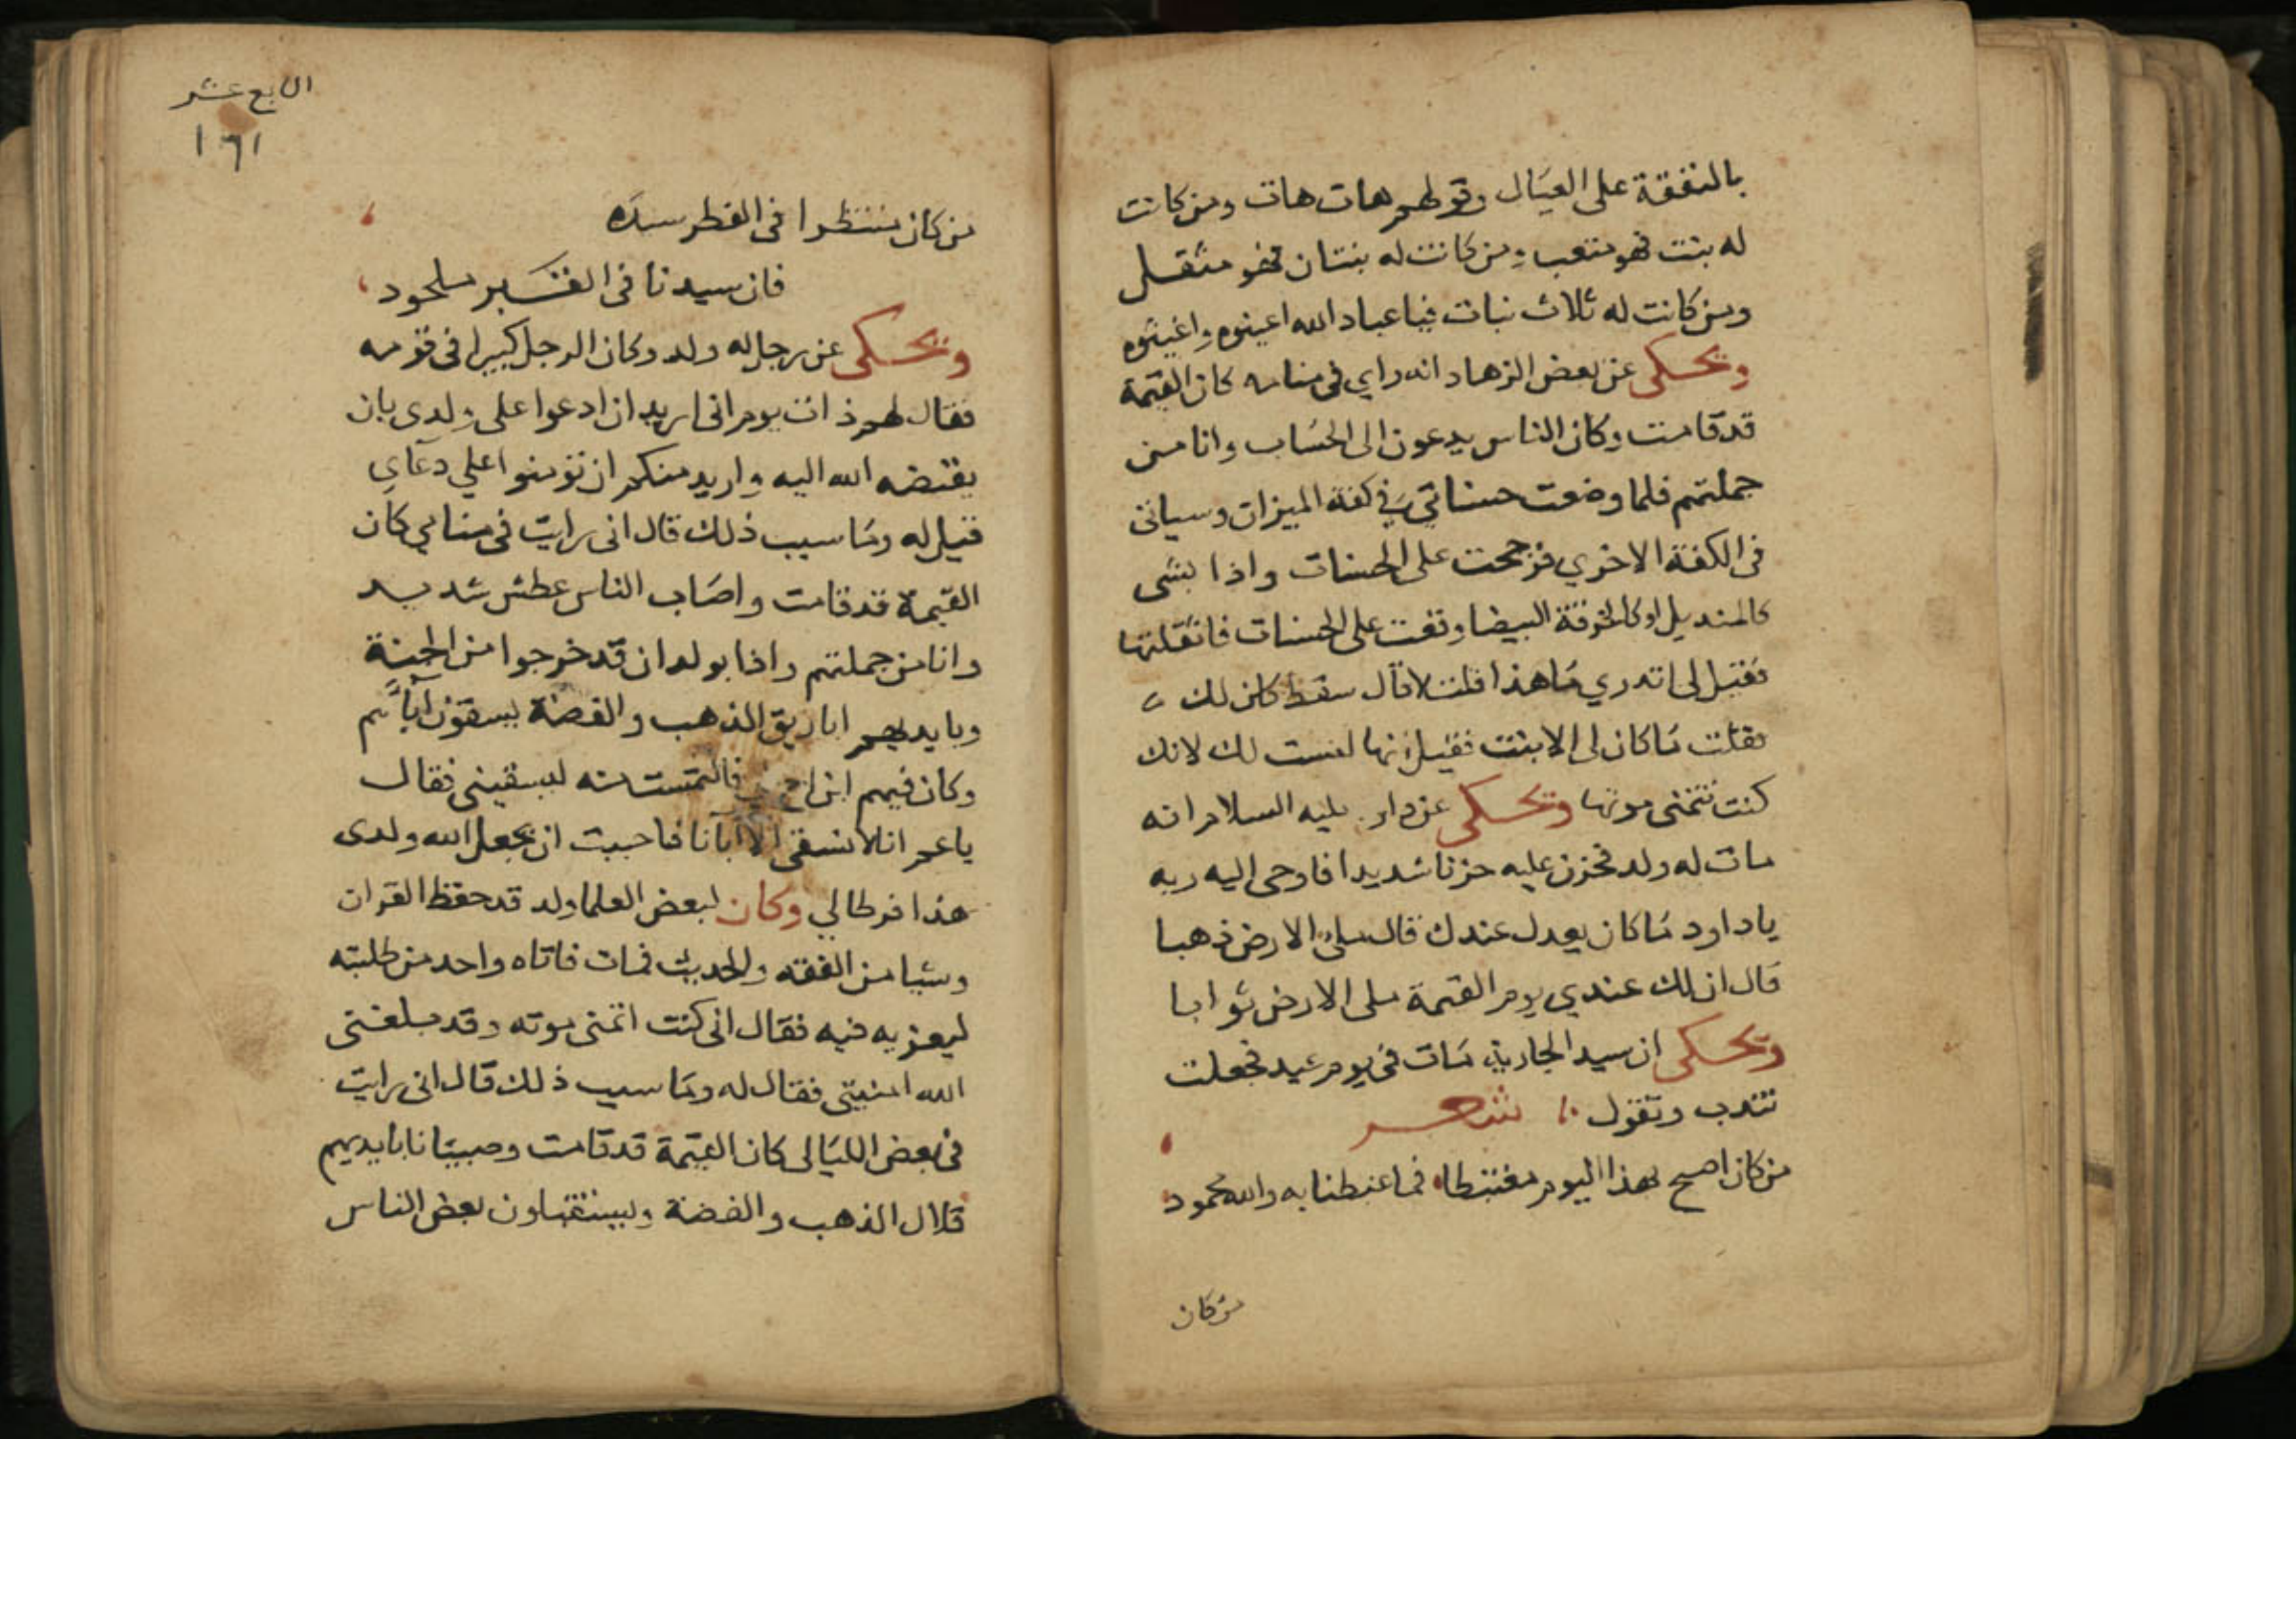 بالنفقة على العيال وقولهم هات هات ومن كانت
له بنت فهو متعب ومن كانت له بنتان فهو مثقل
ومن كانت له ثلاث بنات فيا عباد الله اعينوه واغيثوه
ويحكى عن بعض الزهاد انه راي في منامه كان القيمة
قد قامت وكان الناس يدعون الى الحساب وانا من
جملتهم فلما وضعت حسناتي في كفة الميزان وسياتى
فى الكفة الاخري فرجحت على الحسنات واذا بشى
كالمنديل او كالخرقة البيضا وقعت على الحسنات فاثقلتها
فقيل لى اتدري ما هذا قلت لا قال سقط كان لك
فقلت ما كان لى الا بنت فقيل انها ليست لك لانك
كنت تتمنى موتها ويحكى عن داود عليه السلام انه
مات له ولد فحزن عليه حزنا شديدا فاوحى اليه ربه
ياداود ما كان يعدل عندك قال ملى الارض ذهبا
قال ان لك عندي يوم القيمة ملى الارض ثوابا
ويحكى ان سيد الجارية مات فى يوم عيد فجعلت
تندب وتقول شعر
من كان اصبح بهذا اليوم مغتبطا فما غبطنا به والله محمود
من كان
الرابع عشر
١٦١
من كان منتظرا فى الفطر سيده
فان سيدنا فى القبر ملحود
ويحكى عن رجل له ولد وكان الرجل كبيرا فى قومه
فقال لهم ذات يوم انى اريد ان ادعوا على ولدى بان
يقبضه الله اليه واريد منكم ان تؤمنوا على دعاي
فقيل له وما سبب ذلك قال انى رايت فى منامي كان
القيمة قد قامت واصاب الناس عطش شديد
وانا من جملتهم واذا بولدان قد خرجوا من الجنة
وبايديهم اباريق الذهب والفضة يسقون آبآئهم
وكان فيهم ابن اخ لى فالتمست منه ليسقينى فقال
ياعم انا لا نسقى الا آبآنا فاحببت ان يجعل الله ولدى
هذا فرطا لي وكان لبعض العلما ولد قد حفظ القران
وشيا من الفقه والحديث فمات فاتاه واحد من طلبته
ليعزيه فيه فقال انى كنت اتمنى موته وقد بلغنى
الله امنيتى فقال له وما سبب ذلك قال انى رايت
فى بعض الليالى كان القيمة قد قامت وصبيانا بايديهم
قلال الذهب والفضة ويستقبلون بعض الناس